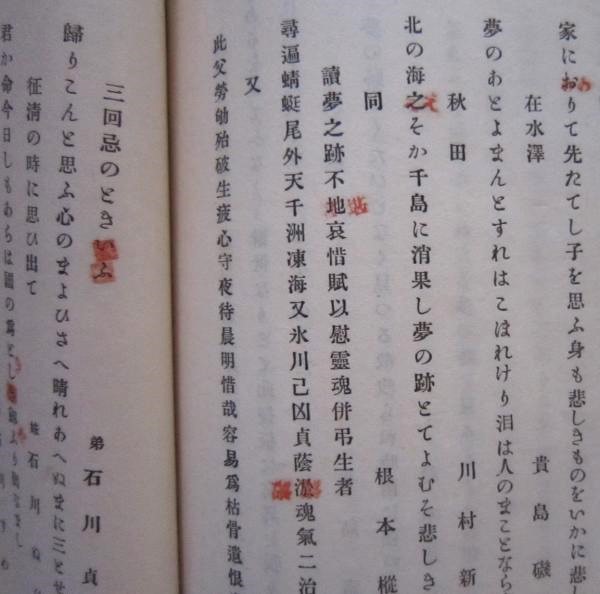 家におりて先たてし子を思ふ身も悲しきものをいかに悲し
在水澤 貴島磯
夢のあとよまんとすれはこほれけり泪は人のまことなら
秋田 川村新
北の海之そか千島に消果し夢の跡とてよむそ悲しき
同 根本樅
讀夢之跡不地哀惜賦以慰靈魂併弔生者
尋逼蜻蜓尾外天千洲凍海又氷川己凶貞蔭澹魂氣二治
又
此父勞劬殆破生疲心守夜待晨明惜哉容易爲枯骨遺恨
三回忌のときいふ
弟 石川貞
歸りこんと思ふ心のまよひさへ晴れあへぬまに三とせ
征清の時に思ひ出て
石川
君か命今日しもあらは國の爲とし